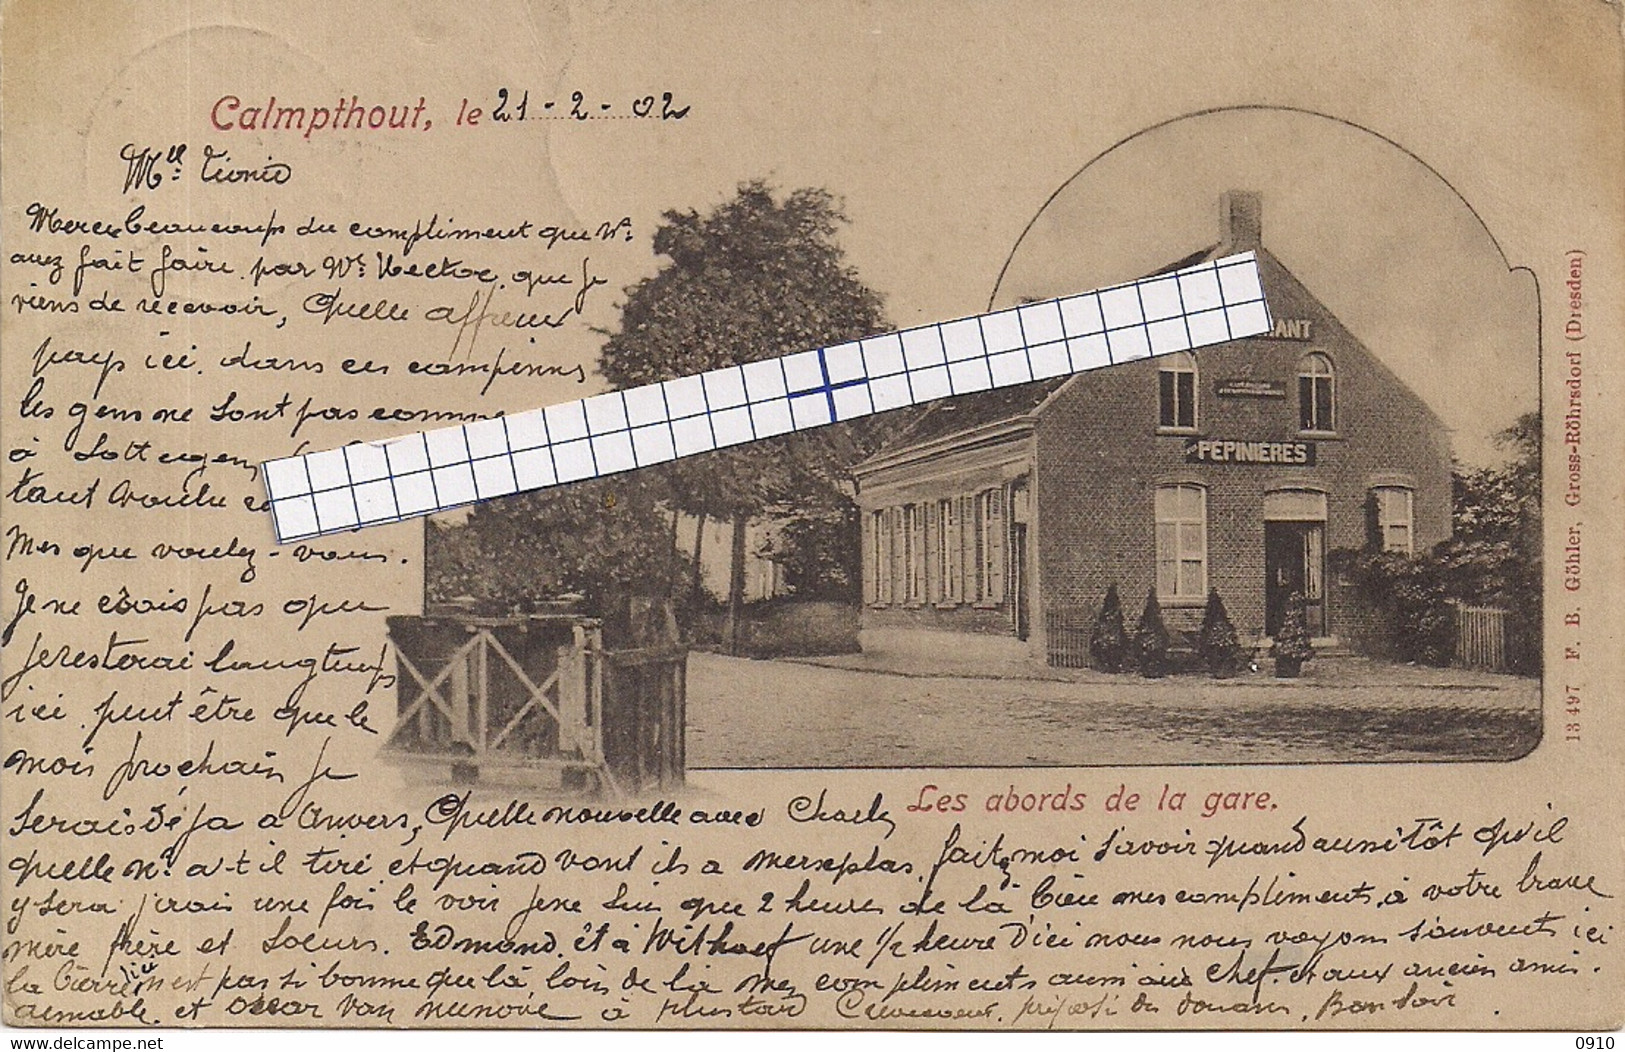 Calmpthout, le 21-2-02
Mll
Merci beaucoup du compliment que Vs
avez fait faire par que je
viens de recevoir, Quelle affreux
pays ici dans ces campinns
les gens ne sont pas comme
à Sottegem,
tant
Mes que voulez-vous.
Je ne crois pas que
je resterai longtemps
ici peut être que le
mois prochain je
serais déja a Anvers, Quelle nouvelle avec Charles
quelle N° a-t-il tiré et quand vont ils a Merxplas, faites moi savoir quand aussitôt qu'il
y sera j'irais une fois le voir je ne suis que 2 heures de là Bien mes compliments à votre brave
mère frère et soeurs. Edmond èt à Withoef une 1/2 heure d'ici nous nous voyons souvents ici
la n'est pas si bonne que là, loin de là Mes compliments aussi aux Chef et aux anciens amis.
aimable et Oscar Van à préposé des douanes, Bonsoir
ANT
PEPINIÈRES
Les abords de la gare.
13497 F. B. Göhler, Gross-Röhrsdorf (Dresden)
0910